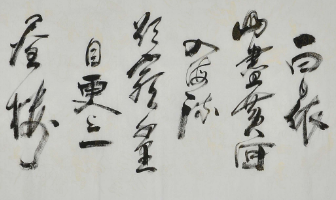 白日依
山盡黃河
入海流
欲窮千里
目更上一
層樓